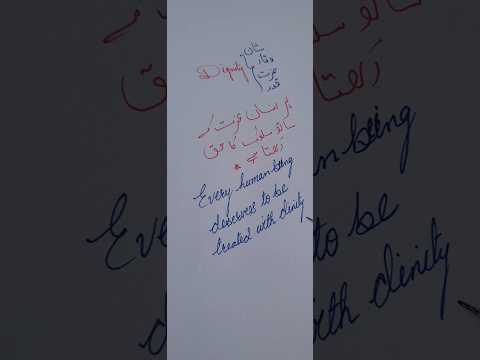 Dignity
شان
وقار
عزت
قدر
ہر انسان عزت کے
ساتھ سلوک کا حق
رکھتا ہے
Every human being
deserves to be
treated with dinity